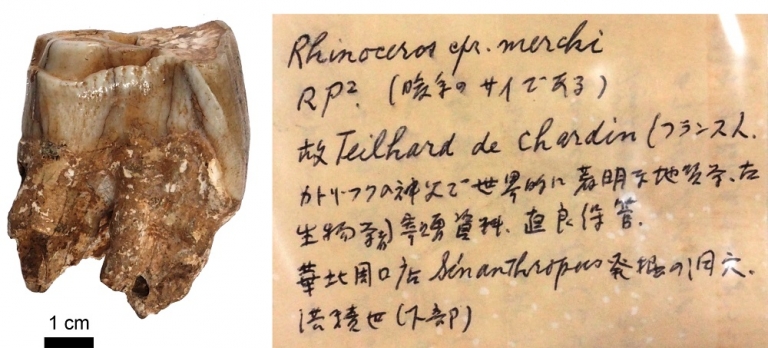 Rhinoceros cfr. mercki
RP². (のサイである)
故 Teilhard de Chardin (フランス人.
カトリックの神父で世界的に著明な地質学、古
生物学者)寄贈資料、直良保管.
華北周口店 Sinanthropus 発掘の洞穴.
洪積世(下部)
1 cm